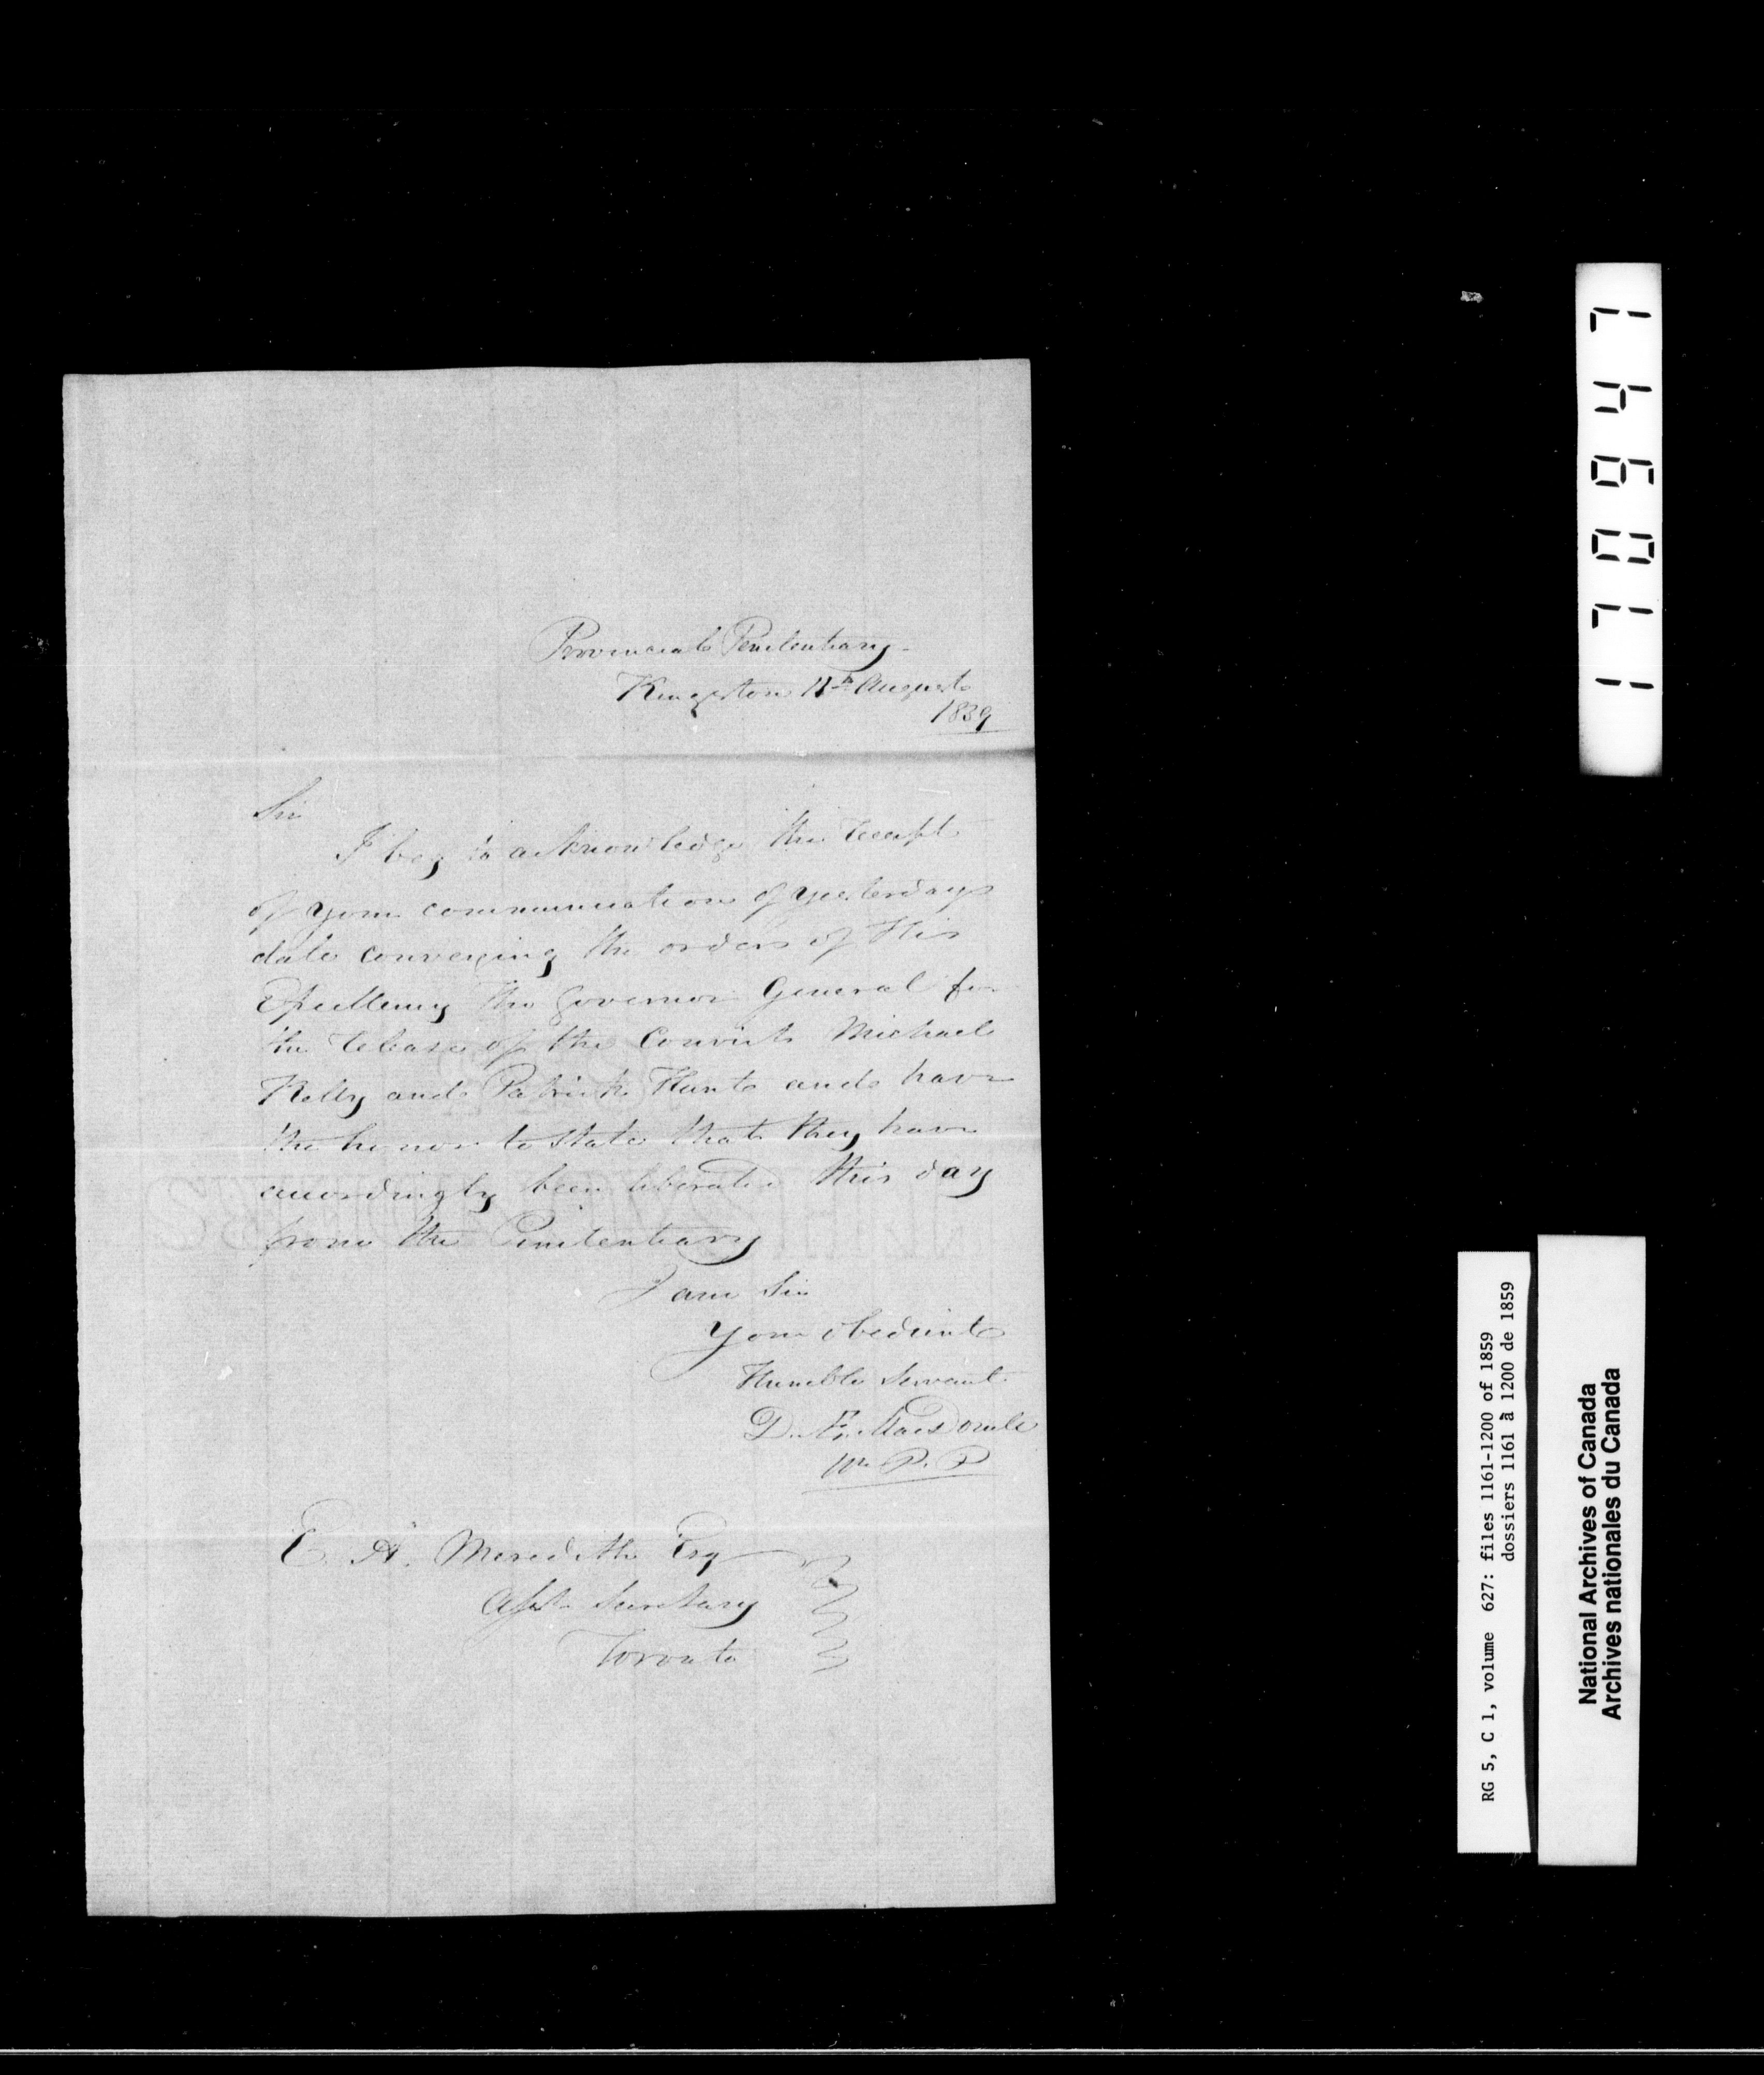 Provincial Penitentiary
Kingston 11th August
1839
Sir
I beg to acknowledge the receipt
of your communication of yesterdays
date conveying the orders of His
Excellency the Governor General for
the release of the Convicts Michael
Kelly and Patrick Hunt and have
the honor to state that they have
accordingly been liberated this day
from the Penitentiary
I am Sir
Your obedient
Humble Servant
D. Æ. MacDonell
Wn P. P
E. A. Meredith Esq
Asst Secretary
Toronto
170941
RG 5, C 1, volume 627: files 1161-1200 of 1859
dossiers 1161 à 1200 de 1859
National Archives of Canada
Archives nationales du Canada